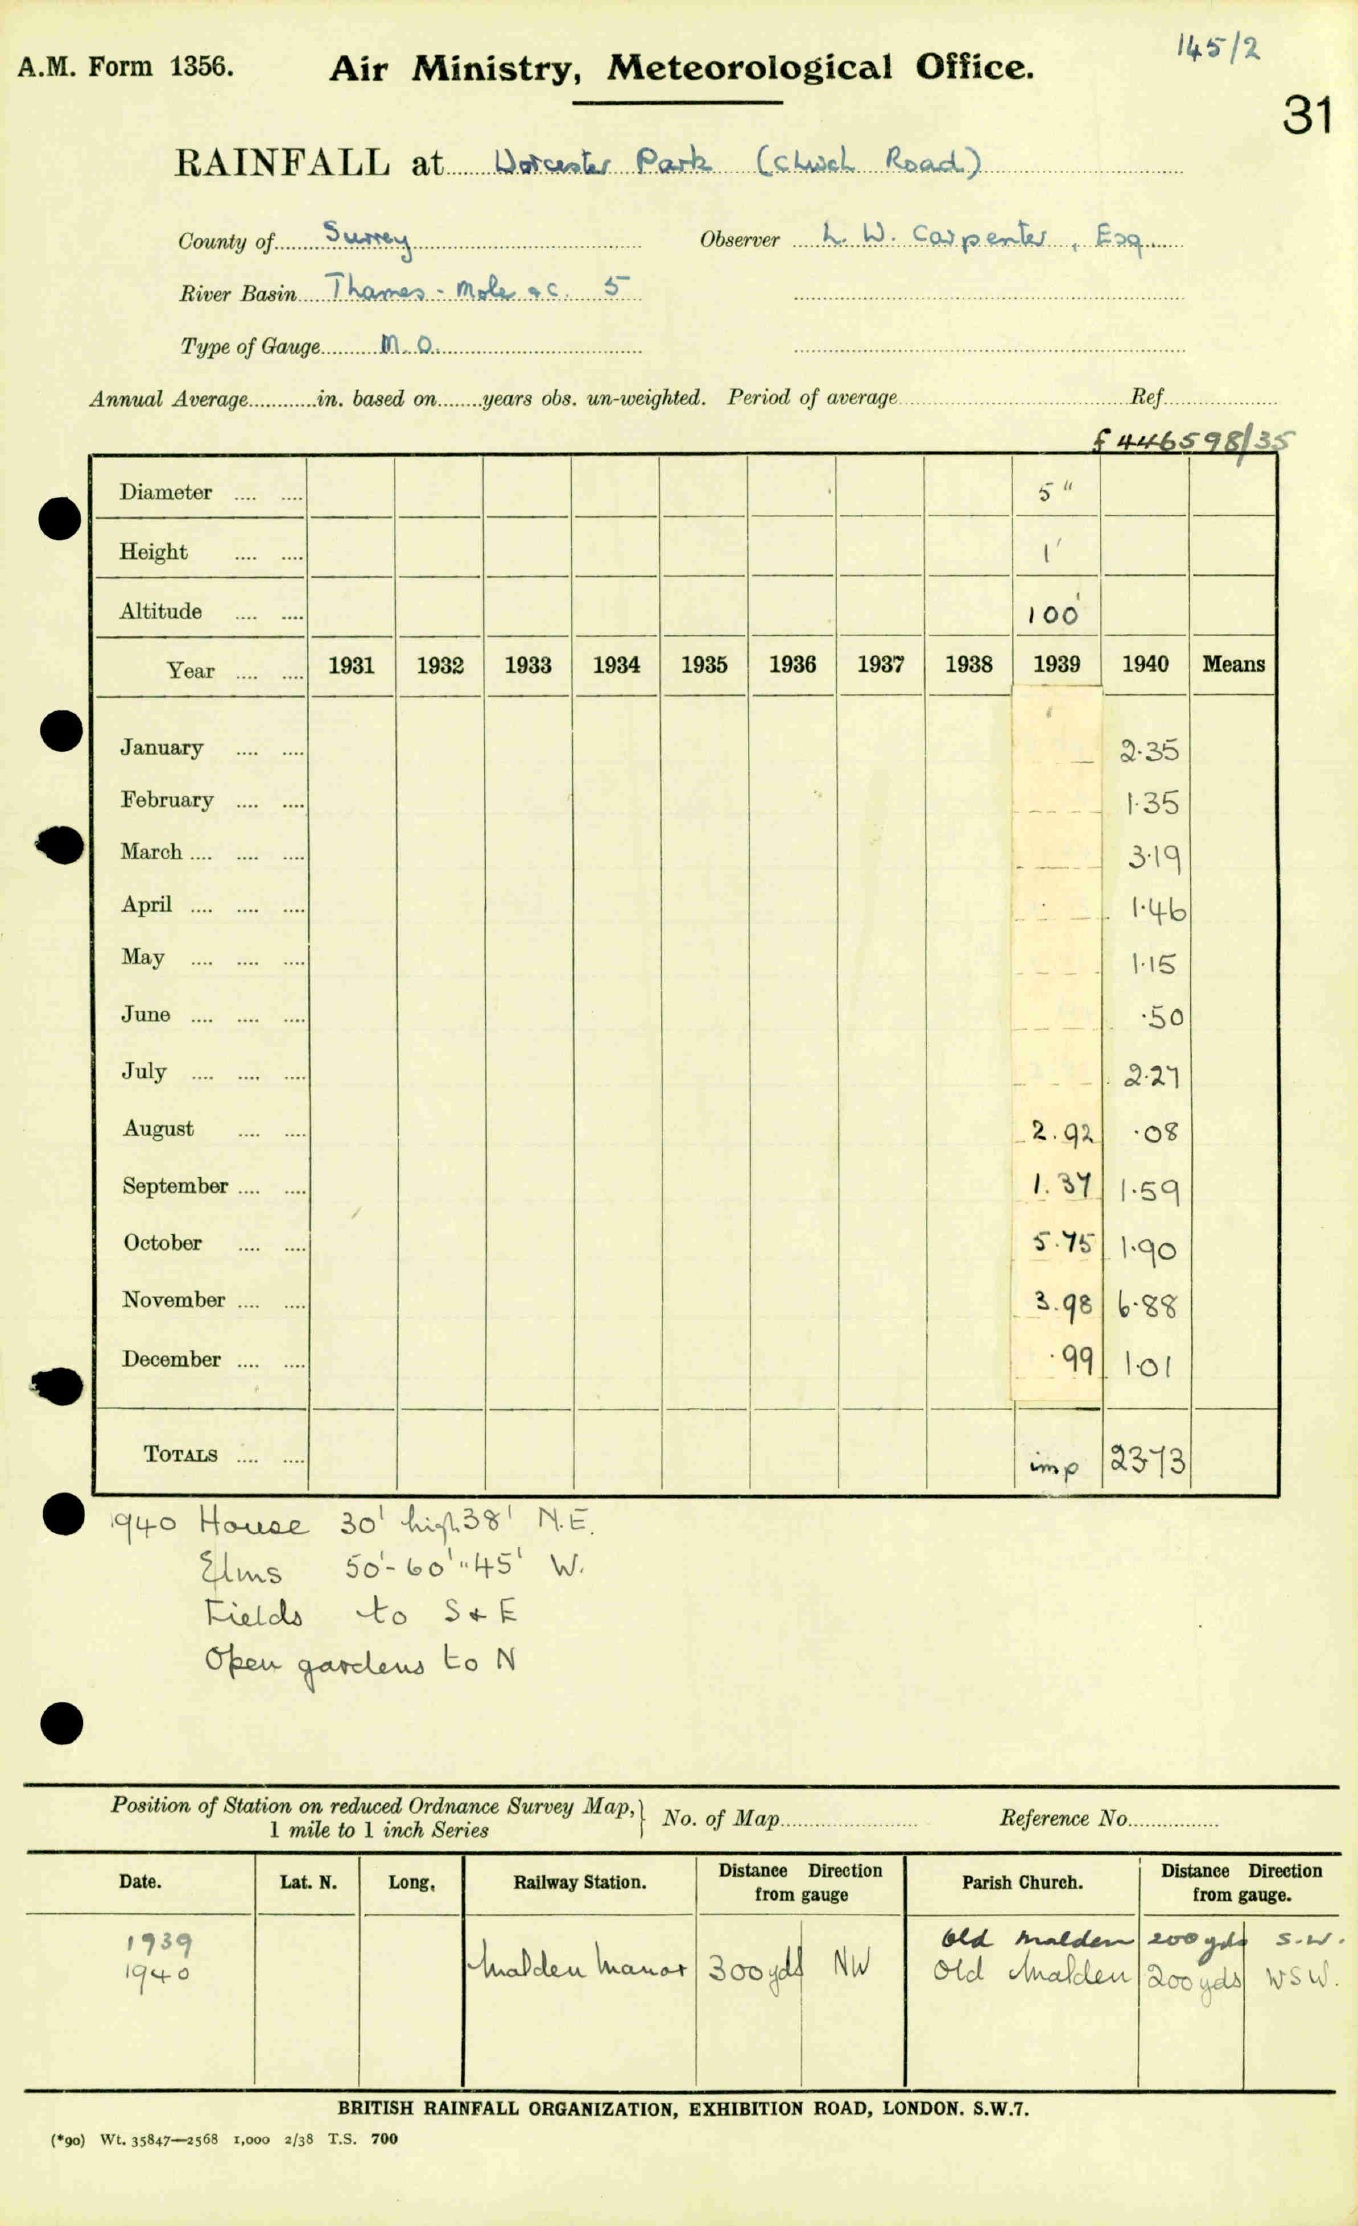 A.M. Form 1356. Air Ministry, Meteorological Office. 145/2
31
RAINFALL at Worcester Park (Church Road)
County of Surrey Observer L. W. Carpenter, Esq
River Basin Thames - Mole &c. 5
Type of Gauge M.O.
Annual Average in. based on years obs. un-weighted. Period of average Ref.
446598/35
Diameter 5"
Height 1'
Altitude 100'
Year 1931 1932 1933 1934 1935 1936 1937 1938 1939 1940 Means
January 2.35
February 1.35
March 3.19
April 1.46
May 1.15
June .50
July 2.27
August 2.92 .08
September 1.37 1.59
October 5.75 1.90
November 3.98 6.88
December .99 1.01
TOTALS imp 23.73
1940 House 30' high 38' N.E.
Elms 50'-60' " 45' W.
Fields to S & E
Open gardens to N
Position of Station on reduced Ordnance Survey Map, 1 mile to 1 inch Series } No. of Map Reference No.
Date. Lat. N. Long. Railway Station. Distance Direction from gauge Parish Church. Distance Direction from gauge.
1939 Old Malden 200 yds S.W.
1940 Malden Manor 300 yds NW Old Malden 200 yds WSW.
BRITISH RAINFALL ORGANIZATION, EXHIBITION ROAD, LONDON. S.W.7.
(*90) Wt. 35847—2568 1,000 2/38 T.S. 700